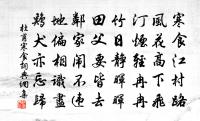 寒食江村路
風花高下飛
汀煙輕冉冉
竹日靜暉暉
田父要皆去
鄰家鬧不違
地偏相識盡
雞犬亦忘歸
杜甫寒食詞典網集